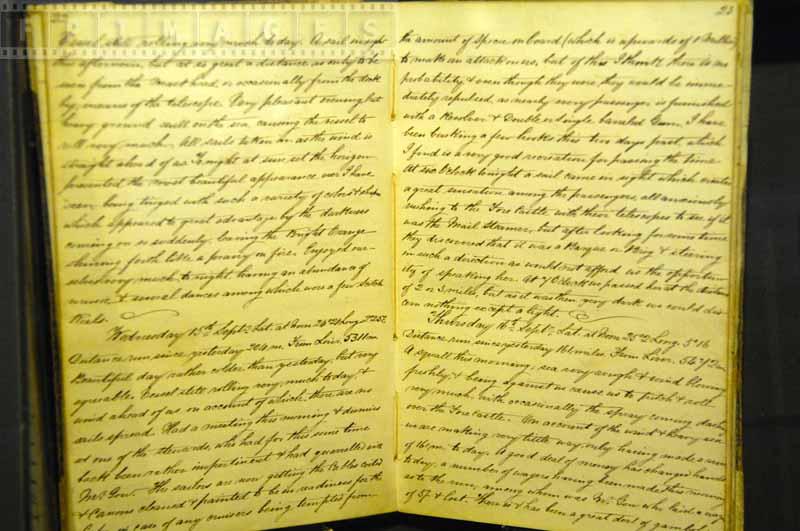 ARTIMAGES
Vessel still rolling very much to day. A sail in sight
this afternoon but at so great a distance as only to be
seen from the Mast head, or occasionally from the deck
by means of the telescope. Very pleasant evening but
heavy ground swell on the sea causing the vessel to
roll very much. All sails taken in as the wind is
straight ahead of us. To night at sun set the horizon
presented the most beautiful appearance ever I have
seen being tinged with such a variety of colors & shapes
which appeared to great advantage by the darkness
coming on so suddenly, leaving the Bright Orange
shining forth like a prairy on fire. Enjoyed our-
selves very much to night having an abundance of
music & several dances among which were a few Scotch
Reels.
Wednesday 15th Sept. Lat. at Noon 24 Long
Distance run since yesterday 204 m. From Liver. 5311 m
Beautiful day rather colder than yesterday, but very
agreeable. Vessel still rolling very much to day, &
wind ahead of us on account of which there are no
sails spread. Had a meeting this morning & dismiss
ed one of the stewards, who had for this some time
back been rather impertinent & had quarrelled with
Mr Gow. The sailors are now getting the
& Canons cleaned & painted to be in readiness for the
in case of any cruisers being tempted from
23
the amount of Specie on board (which is upwards of
to make an attack on us, but of this I think there is no
probability & even though they were they would be imme-
diately repulsed, as nearly every passenger is furnished
with a Revolver & Double or Single barreled Gun. I have
been binding a few books this two days past, which
I find is a very good recreation for passing the time
At six O'Clock to night a sail came in sight which creates
a great sensation among the passengers, all anxiously
rushing to the Fore Castle with their telescopes to see if it
was the Mail Steamer, but after looking for some time
they discovered that it was a Barque or Brig & steering
in such a direction as would not afford us the opportun-
ity of speaking her. At 7 O'Clock we passed her at the distance
of 2 or 3 miles, but as it was then very dark we could dis-
cern nothing except a light.
Thursday 16th Sept. Lat. at Noon 25 Long. 5°16
Distance run since yesterday 161 miles. From Liver. 5472 m
A squall this morning, sea very rough & wind blowing
freshly, & being against us causes us to pitch & roll
very much, with occasionally the spray coming dashing
over the Fore Castle. On account of the wind & heavy sea
we are making very little way, only having made a run
of 161 m. to day. A good deal of money has changed hands
to day, a number of wagers having been made this morning
as to the run, among whom was Mr Gow who laid a wager
of £7 & lost. There is & has been a great deal of gambling